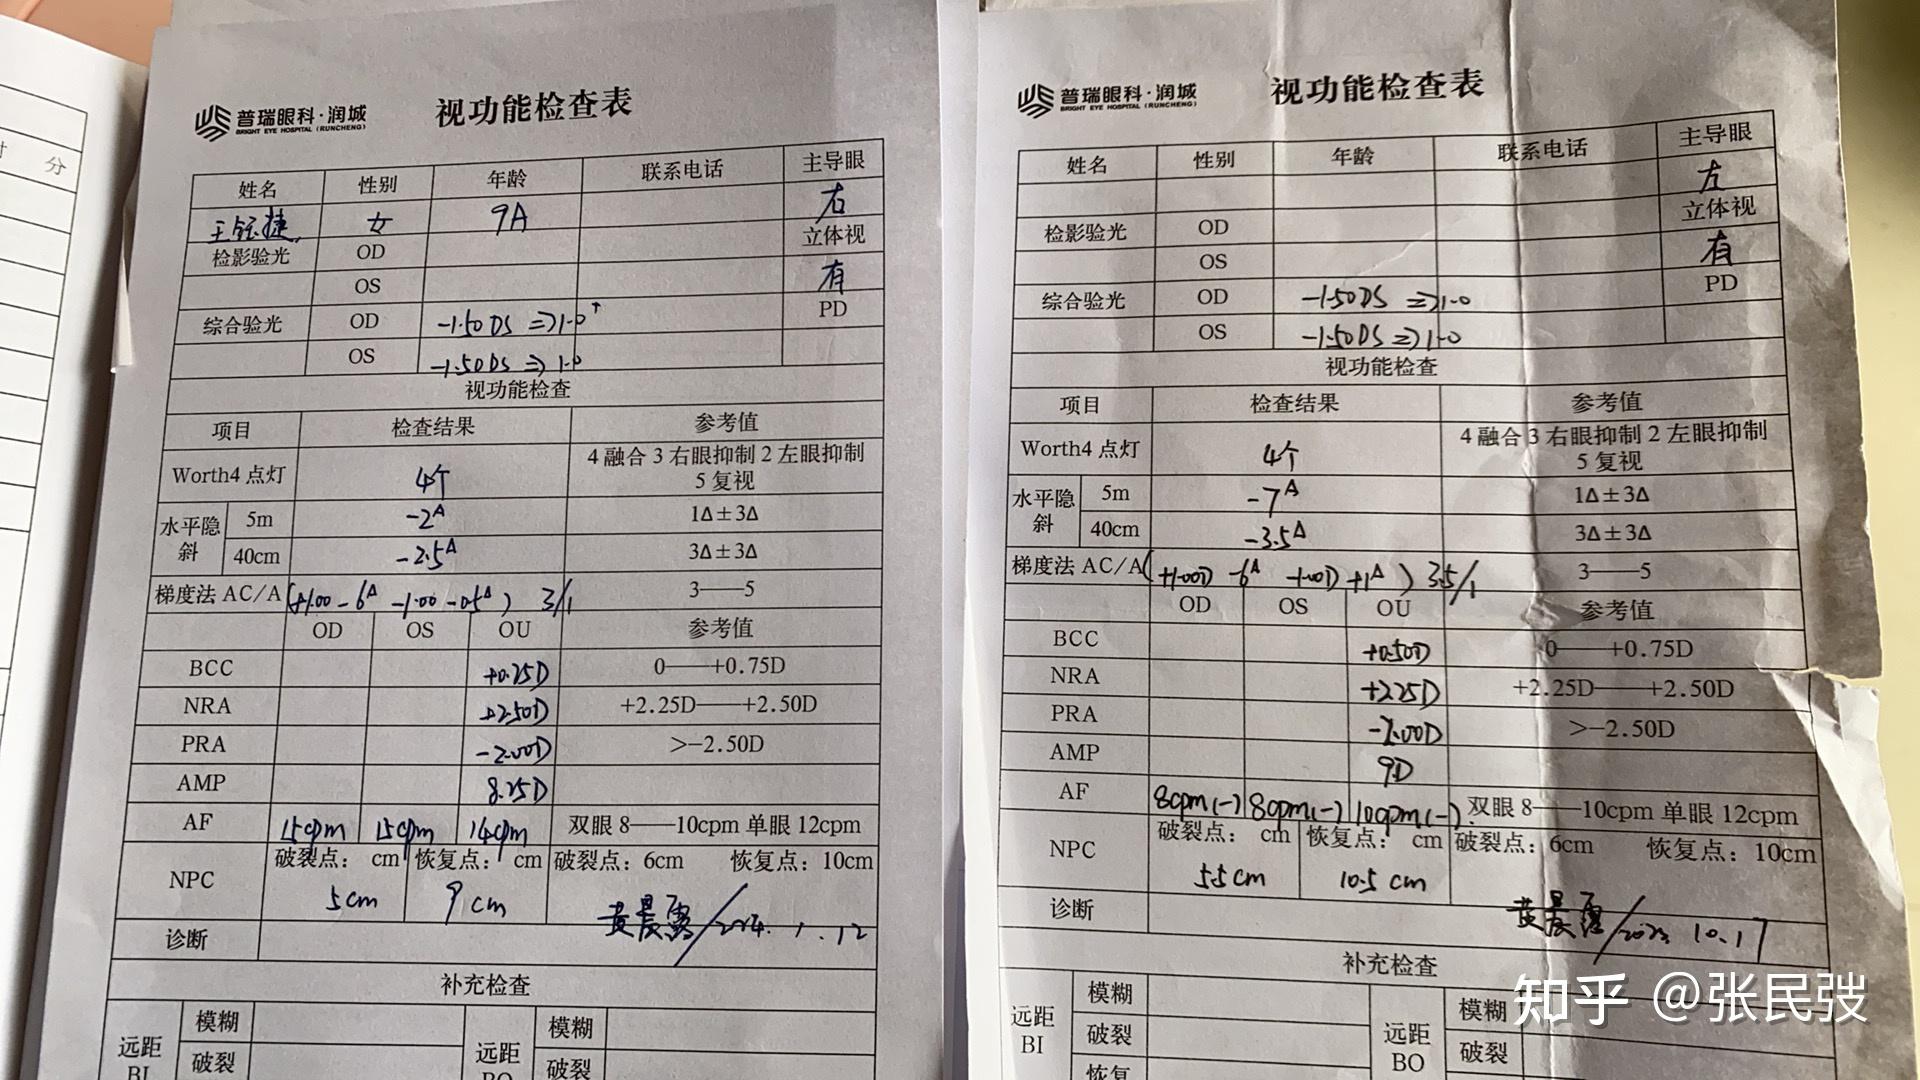 时 分
普瑞眼科·润城
BRIGHT EYE HOSPITAL (RUNCHENG)
视功能检查表
姓名 性别 年龄 联系电话 主导眼
女 9A 右
检影验光 OD 立体视
OS 有
综合验光 OD -1.50DS ⇒1.0⁺ PD
OS -1.50DS ⇒1.0
视功能检查
项目 检查结果 参考值
Worth4 点灯 4个 4 融合 3 右眼抑制 2 左眼抑制
5 复视
水平隐斜 5m -2Δ 1Δ±3Δ
40cm -2.5Δ 3Δ±3Δ
梯度法 AC/A (+1.00 -6Δ -1.00 -0.5Δ) 3/1 3——5
OD OS OU 参考值
BCC +0.25D 0——+0.75D
NRA +2.50D +2.25D——+2.50D
PRA -2.00D >-2.50D
AMP 8.25D
AF 15cpm 15cpm 14cpm 双眼 8——10cpm 单眼 12cpm
NPC 破裂点： cm 恢复点： cm 破裂点：6cm 恢复点：10cm
5cm 9cm
黄晨露/2024.1.12
诊断
补充检查
远距 BI 模糊 远距 BO 模糊
破裂 破裂
普瑞眼科·润城
BRIGHT EYE HOSPITAL (RUNCHENG)
视功能检查表
姓名 性别 年龄 联系电话 主导眼
左
检影验光 OD 立体视
OS 有
综合验光 OD -1.50DS ⇒1.0 PD
OS -1.50DS ⇒1.0
视功能检查
项目 检查结果 参考值
Worth4 点灯 4个 4 融合 3 右眼抑制 2 左眼抑制
5 复视
水平隐斜 5m -7Δ 1Δ±3Δ
40cm -3.5Δ 3Δ±3Δ
梯度法 AC/A (+1.00D -6Δ -1.00D +1Δ) 3.5/1 3——5
OD OS OU 参考值
BCC +0.50D 0——+0.75D
NRA +2.25D +2.25D——+2.50D
PRA >-2.50D
AMP 9D
AF 8cpm(-) 8cpm(-) 10cpm(-) 双眼 8——10cpm 单眼 12cpm
NPC 破裂点： cm 恢复点： cm 破裂点：6cm 恢复点：10cm
5.5cm 10.5cm
黄晨露/2023.10.17
诊断
补充检查
远距 BI 模糊 远距 BO 模糊
破裂 破裂
恢复
知乎 @张民弢